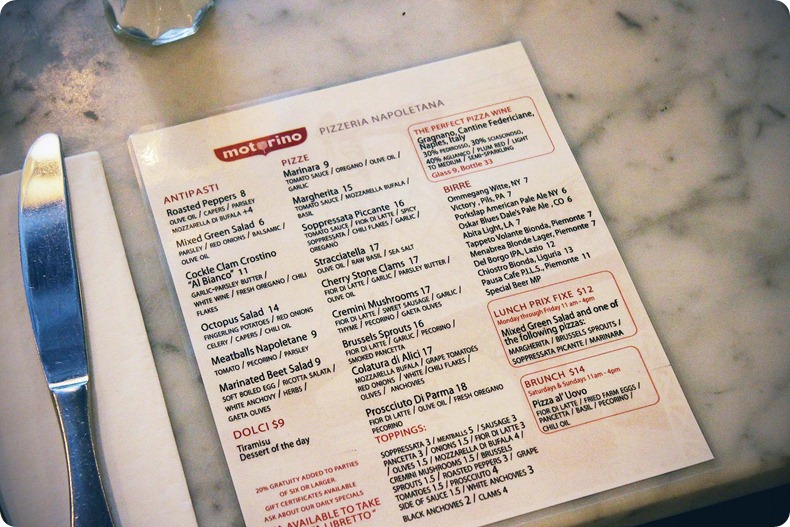 motorino PIZZERIA NAPOLETANA
ANTIPASTI
Roasted Peppers 8
OLIVE OIL / CAPERS / PARSLEY
MOZZARELLA DI BUFALA +4
Mixed Green Salad 6
PARSLEY / RED ONIONS / BALSAMIC /
OLIVE OIL
Cockle Clam Crostino
"Al Bianco" 11
GARLIC-PARSLEY BUTTER /
WHITE WINE / FRESH OREGANO / CHILI
FLAKES
Octopus Salad 14
FINGERLING POTATOES / RED ONIONS
CELERY / CAPERS / CHILI OIL
Meatballs Napoletane 9
TOMATO / PECORINO / PARSLEY
Marinated Beet Salad 9
SOFT BOILED EGG / RICOTTA SALATA /
WHITE ANCHOVY / HERBS /
GAETA OLIVES
DOLCI $9
Tiramisu
Dessert of the day
20% GRATUITY ADDED TO PARTIES
OF SIX OR LARGER.
GIFT CERTIFICATES AVAILABLE
ASK ABOUT OUR DAILY SPECIALS
AVAILABLE TO TAKE
LIBRETTO"
PIZZE
Marinara 9
TOMATO SAUCE / OREGANO / OLIVE OIL /
GARLIC
Margherita 15
TOMATO SAUCE / MOZZARELLA BUFALA /
BASIL
Soppressata Piccante 16
TOMATO SAUCE / FIOR DI LATTE / SPICY
SOPPRESSATA / CHILI FLAKES / GARLIC /
OREGANO
Stracciatella 17
OLIVE OIL / RAW BASIL / SEA SALT
Cherry Stone Clams 17
FIOR DI LATTE / GARLIC / PARSLEY BUTTER /
OLIVE OIL
Cremini Mushrooms 17
FIOR DI LATTE / SWEET SAUSAGE / GARLIC /
THYME / PECORINO / GAETA OLIVES
Brussels Sprouts 16
FIOR DI LATTE / GARLIC / PECORINO /
SMOKED PANCETTA
Colatura di Alici 17
MOZZARELLA BUFALA / GRAPE TOMATOES
RED ONIONS / WHITE /CHILI FLAKES /
OLIVES / ANCHOVIES
Prosciutto Di Parma 18
FIOR DI LATTE / OLIVE OIL / FRESH OREGANO
PECORINO
TOPPINGS:
SOPPRESSATA 3 / MEATBALLS 5 / SAUSAGE 3
PANCETTA 3 / ONIONS 1.5 / FIOR DI LATTE 3
/ OLIVES 1.5 / MOZZARELLA DI BUFALA 4 /
CREMINI MUSHROOMS 1.5 / BRUSSELS
SPROUTS 1.5 / ROASTED PEPPERS 3 / GRAPE
TOMATOES 1.5 / PROSCIUTTO 4
SIDE OF SAUCE 1.5 / WHITE ANCHOVIES 3
BLACK ANCHOVIES 2 / CLAMS 4
THE PERFECT PIZZA WINE
Gragnano, Cantine Federiciane,
Naples, Italy
30% PEDROSSO, 30% SCIASCINOSO,
40% AGLIANICO / PLUM RED / LIGHT
TO MEDIUM / SEMI-SPARKLING
Glass 9, Bottle 33
BIRRE
Ommegang Witte, NY 7
Victory , Pils, PA 7
Porkslap American Pale Ale NY 6
Oskar Blues Dale's Pale Ale , CO 6
Abita Light, LA 7
Tappeto Volante Bionda, Piemonte 7
Menabrea Blonde Lager, Piemonte 7
Del Borgo IPA, Lazio 12
Chiostro Bionda, Liguria 13
Pausa Cafe P.I.L.S., Piemonte 11
Special Beer MP
LUNCH PRIX FIXE $12
Monday through Friday 11 am - 4pm)
Mixed Green Salad and one of
the following pizzas:
MARGHERITA / BRUSSELS SPROUTS /
SOPPRESSATA PICANTE / MARINARA
BRUNCH $14
Saturdays & Sundays 11am - 4pm
Pizza al' Uovo
FIOR DI LATTE / FRIED FARM EGGS /
PANCETTA / BASIL / PECORINO /
CHILI OIL